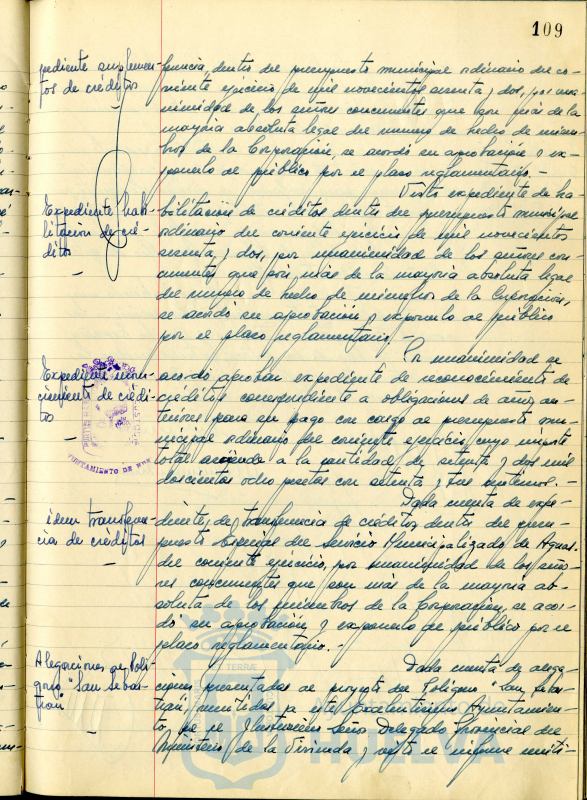 109
pediente suplemen-
tos de créditos
ferencia, dentro del presupuesto municipal ordinario del co-
rriente ejercicio de mil novecientos sesenta y dos, por una-
nimidad de los señores concurrentes que son más de la
mayoría absoluta legal del numero de hecho de miem-
bros de la Corporación, se acordó su aprobación y ex-
ponerlo al público por el plazo reglamentario.-
Expediente habi-
litacion de cré-
ditos
Visto expediente de ha-
bilitación de créditos dentro del presupuesto municipal
ordinario del corriente ejercicio de mil novecientos
sesenta y dos, por unanimidad de los señores con-
currentes que son más de la mayoría absoluta legal
del numero de hecho de miembros de la Corporación,
se acordó su aprobación y exponerlo al público
por el plazo reglamentario.-
Expediente
de crédi-
tos
Por unanimidad se
acordó aprobar expediente de reconocimiento de
créditos correspondiente a obligaciones de años an-
teriores para su pago con cargo al presupuesto mu-
nicipal ordinario del corriente ejercicio cuyo importe
total asciende a la cantidad de setenta y dos mil
doscientas ocho pesetas con setenta y céntimos.-
AYUNTAMIENTO DE
idem transferen-
cia de créditos
Dada cuenta de expe-
diente de transferencia de créditos dentro del presu-
puesto Especial del Servicio Municipalizado de Aguas
del corriente ejercicio, por unanimidad de los seño-
res concurrentes que son más de la mayoría ab-
soluta de los miembros de la Corporación, se acor-
dó su aprobación y exponerlo al público por el
plazo reglamentario.-
Alegaciones al Polí-
gono "San Sebas-
tian"
Dada cuenta de alega-
ciones presentadas al proyecto del Polígono "San Sebas-
tian", remitidas a este Excelentisimo Ayuntamien-
to, por el Ilustrisimo Señor Delegado Provincial del
Ministerio de la Vivienda y visto el informe emiti-
TERRAE
HUELVA